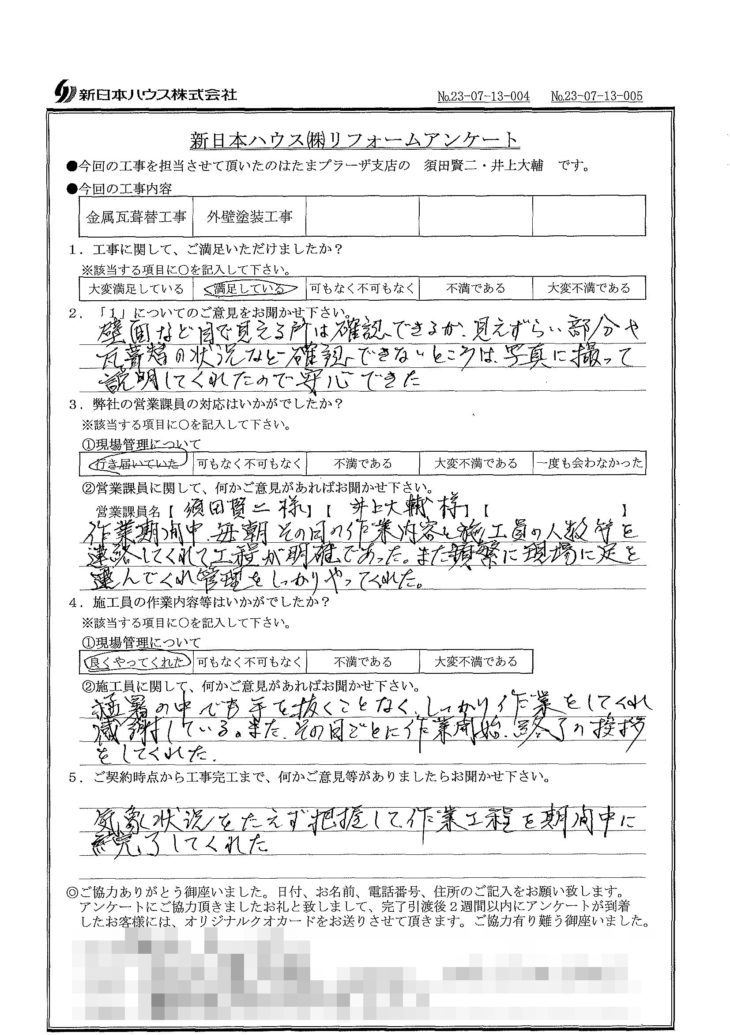 新日本ハウス株式会社
No.23-07-13-004 No.23-07-13-005
新日本ハウス㈱リフォームアンケート
●今回の工事を担当させて頂いたのはたまプラーザ支店の 須田賢二・井上大輔 です。
●今回の工事内容
金属瓦葺替工事 外壁塗装工事
1．工事に関して、ご満足いただけましたか？
※該当する項目に〇を記入して下さい。
大変満足している 満足している 可もなく不可もなく 不満である 大変不満である
2．「1」についてのご意見をお聞かせ下さい。
壁面など目で見える所は確認できるが、見えずらい部分や
瓦葺替の状況など確認できないところは、写真に撮って
説明してくれたので安心できた
3．弊社の営業課員の対応はいかがでしたか？
※該当する項目に〇を記入して下さい。
①現場管理について
行き届いていた 可もなく不可もなく 不満である 大変不満である 一度も会わなかった
②営業課員に関して、何かご意見があればお聞かせ下さい。
営業課員名【 須田賢二 様】【 井上大輔 様】【 】
作業期間中、毎朝その日の作業内容と施工員の人数等を
連絡してくれて工程が明確であった。また頻繁に現場に足を
運んでくれ管理をしっかりやってくれた。
4．施工員の作業内容等はいかがでしたか？
※該当する項目に〇を記入して下さい。
①現場管理について
良くやってくれた 可もなく不可もなく 不満である 大変不満である
②施工員に関して、何かご意見があればお聞かせ下さい。
暑の中でも手を抜くことなく、しっかり作業をしてくれ
謝している。また、その日ごとに作業開始、終了の挨拶
をしてくれた.
5．ご契約時点から工事完工まで、何かご意見等がありましたらお聞かせ下さい。
気象状況をたえず把握して、作業工程を期間中に
完了してくれた
◎ご協力ありがとう御座いました。日付、お名前、電話番号、住所のご記入をお願い致します。
アンケートにご協力頂きましたお礼と致しまして、完了引渡後2週間以内にアンケートが到着
したお客様には、オリジナルクオカードをお送りさせて頂きます。ご協力有り難う御座いました。